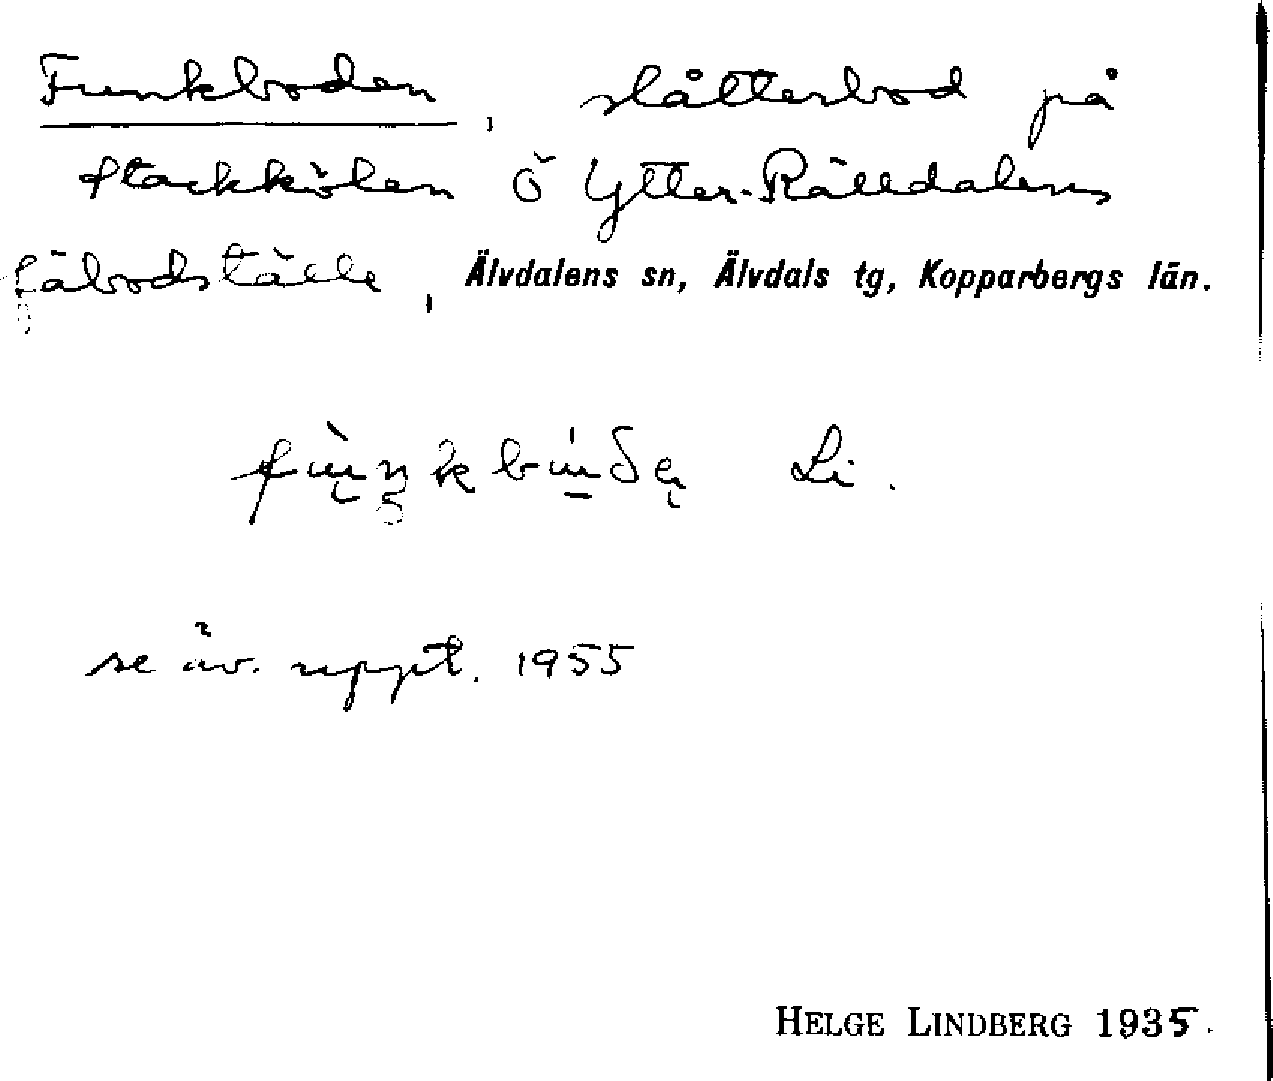 Funkboden, slåtterbod på
Stackkölen Ö Ytter-Rälldalens
fäbodställe, Älvdalens sn, Älvdals tg, Kopparbergs län.
Li.
se äv. uppt. 1955
HELGE LINDBERG 1935.